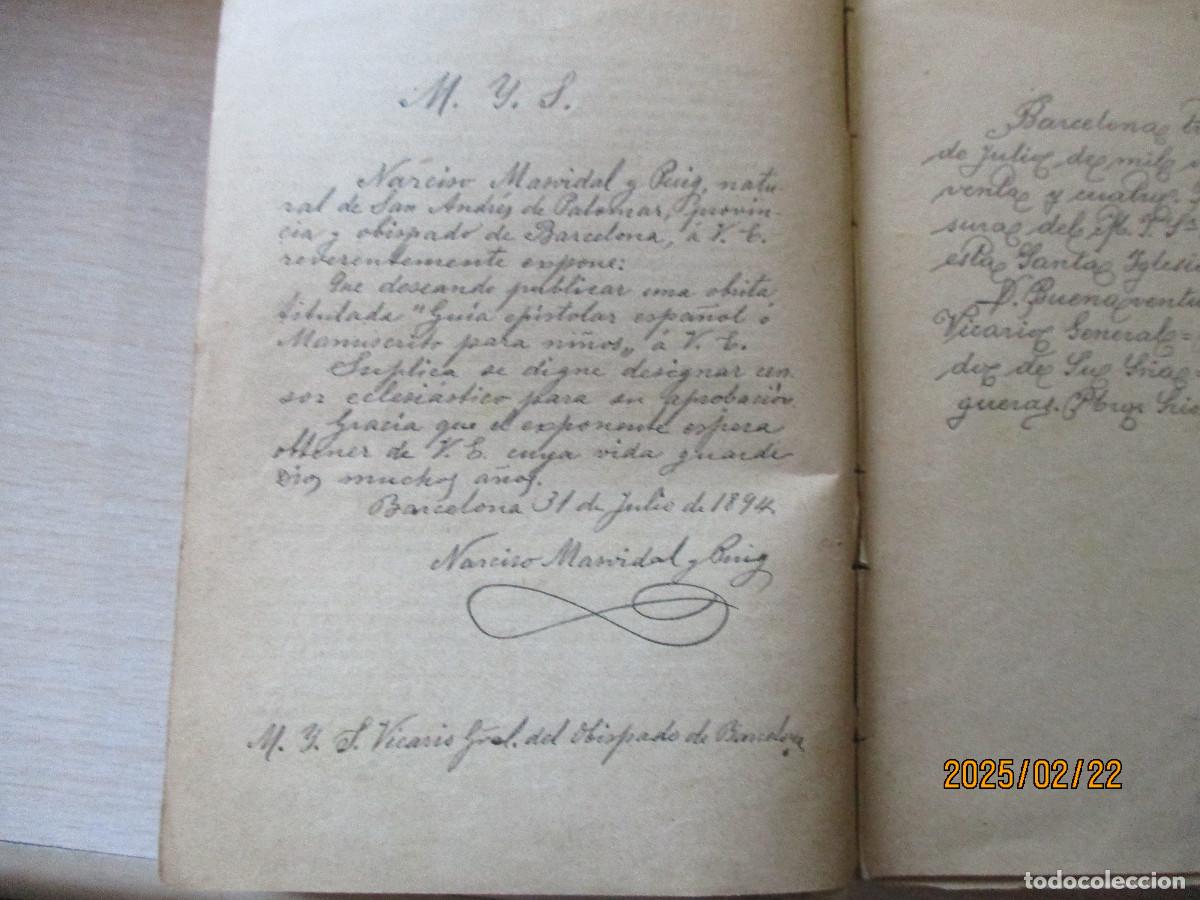 M. Y. S.
Narciso Masvidal y Puig, natu-
ral de San Andrés de Palomar, provin-
cia y obispado de Barcelona, á V. E.
reverentemente expone:
Que deseando publicar una obrita
titulada "Guía epistolar español ó
Manuscrito para niños„ á V. E.
Suplica se digne designar cen-
sor eclesiástico para su aprobación.
Gracia que el exponente espera
obtener de V. E. cuya vida guarde
Dios muchos años.
Barcelona 31 de Julio de 1894
Narciso Masvidal y Puig
M. Y. S. Vicario Gral. del Obispado de Barcelona
Barcelona
de Julio de mil
venta y cuatro.
sura del M. I. S.
esta Santa Iglesia
D. Buenaventu
Vicario General=
do de Su Sria=
gueras. Pbro.
2025/02/22
todocoleccion